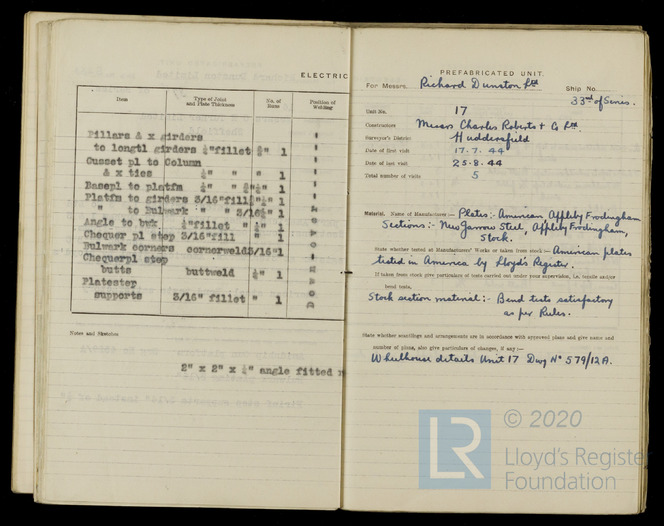 ELECTRIC
Item
Type of Joint and Plate Thickness
No. of Runs
Position of Welding
Pillars & x girders
to longtl girders ¼"fillet 1
Gusset pl to Column
& x ties ¼" " " 1
Basepl to platfm ¼" " 1
Platfm to girders 3/16"fill 1
" to Bulwark " " 3/16 1
Angle to bwk ¼"fillet " 1
Chequer pl step 3/16"fill " 1
Bulwark corners cornerweld 3/16" 1
Chequerpl step
butts buttweld ¼" 1
Platester
supports 3/16" fillet " 1
Notes and Sketches
2" x 2" x ¼" angle fitted
PREFABRICATED UNIT.
For Messrs. Richard Dunston Ltd Ship No.
33rd of Series.
Unit No. 17
Constructors Messrs Charles Roberts & Co Ltd.
Surveyor's District Huddersfield
Date of first visit 17.7.44
Date of last visit 25.8.44
Total number of visits 5
Material. Name of Manufacturers :- Plates:- American, Appleby Frodingham
Sections:- New Jarrow Steel, Appleby Frodingham,
Stock.
State whether tested at Manufacturers' Works or taken from stock :- American plates
tested in America by Lloyd's Register.
If taken from stock give particulars of tests carried out under your supervision, i.e. tensile and/or
bend tests.
Stock section material:- Bend tests satisfactory
as per Rules.
State whether scantlings and arrangements are in accordance with approved plans and give name and
number of plans, also give particulars of changes, if any :-
Wheelhouse details Unit 17 Dwg No 579/12A.
© 2020
LR
Lloyd's Register
Foundation